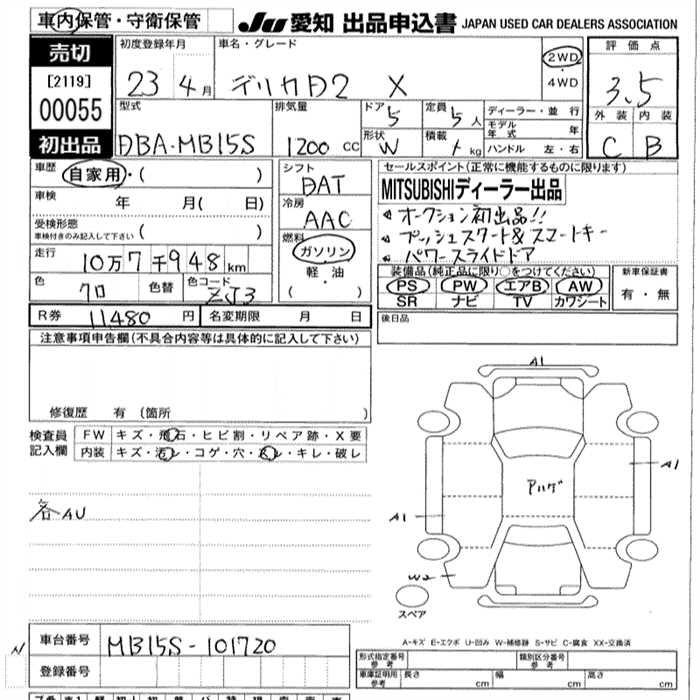 車内保管・守衛保管
JU 愛知 出品申込書 JAPAN USED CAR DEALERS ASSOCIATION
売切
[2119]
00055
初出品
初度登録年月
23 4月
車名・グレード
デリカD2 X
2WD
4WD
評価点
3.5
外装 内装
C B
型式
DBA-MB15S
排気量
1200 CC
ドア
5
形状
W
定員
5人
積載
kg
ディーラー・並行
モデル年式 年
ハンドル 左・右
車歴
自家用・( )
車検 年 月( 日)
受検形態
車検付きのみ記入して下さい ( )
走行
10万7千948km
色
クロ
色替
色コード
ZJ3
シフト
DAT
冷房
AAC
燃料
ガソリン
軽・油
( ・ )
セールスポイント(正常に機能するものに限ります)
MITSUBISHIディーラー出品
オークション初出品!!
プッシュスタート&スマートキー
パワースライドドア
装備品(純正品に限り○をつけてください)
PS PW エアB AW
SR ナビ TV カワシート
新車保証書
有・無
R券 11480 円 名変期限 月 日
後日品
注意事項申告欄(不具合内容等は具体的に記入して下さい)
修復歴 有(箇所 )
検査員記入欄
FW キズ・飛石・ヒビ割・リペア跡・X要
内装 キズ・汚レ・コゲ・穴・スレ・キレ・破レ
各AU
A1
A1
A1
W2
スペア
A-キズ E-エクボ U-凹み W-補修跡 S-サビ C-腐食 XX-交換済
N
車台番号 MB15S-101720
登録番号
形式指定番号 参考
類別区分番号 参考
車庫証明用 参考 長さ cm 幅 cm 高さ cm